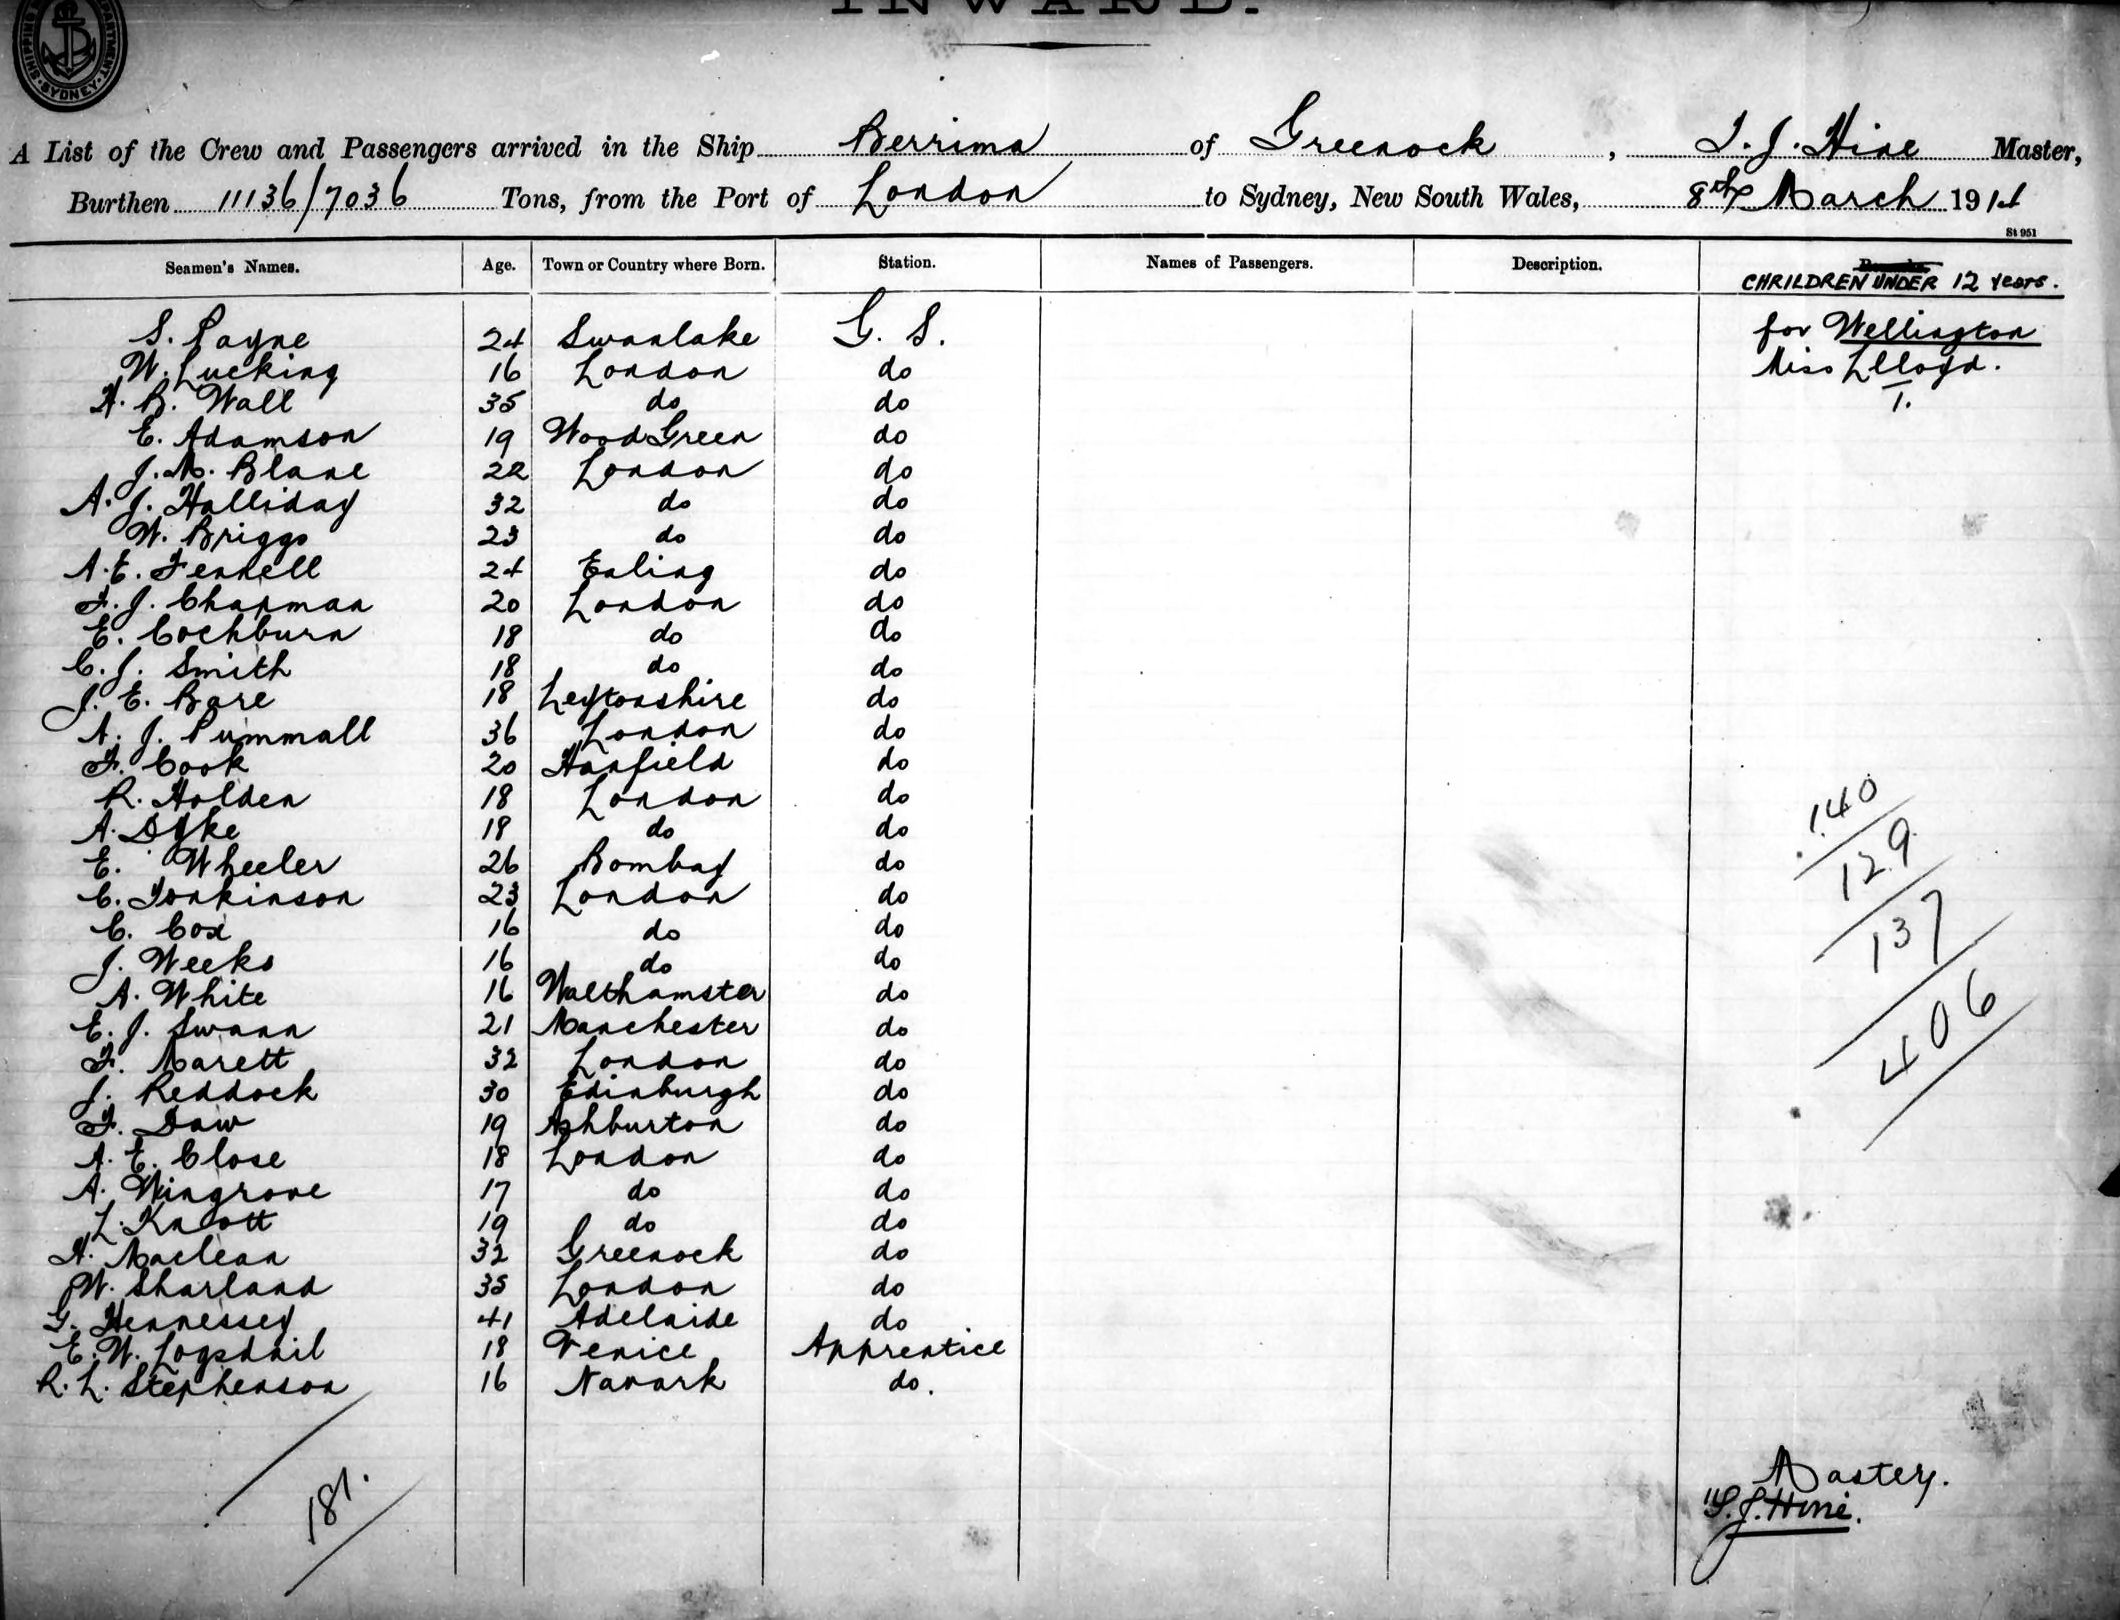 INWARD.
SHIPPING DEPARTMENT SYDNEY
A List of the Crew and Passengers arrived in the Ship Berrima of Greenock, I. J. Hine Master,
Burthen 11136/7036 Tons, from the Port of London to Sydney, New South Wales, 8th March 1914
St 951
Seamen's Names. Age. Town or Country where Born. Station. Names of Passengers. Description.
CHRILDREN UNDER 12 Years.
S. Payne 24 Swanlake G. S. for Wellington
W. Lucking 16 London do Miss Llloyd.
H. B. Wall 35 do do 1.
E. Adamson 19 Wood Green do
J. M. Blane 22 London do
A. J. Halliday 32 do do
W. Briggs 23 do do
A. E. Fennell 24 Ealing do
F. J. Chapman 20 London do
E. Cochburn 18 do do
C. J. Smith 18 do do
J. E. Bare 18 Leytonshire do
A. J. Pummall 36 London do
F. Cook 20 Hanfield do
R. Holden 18 London do
A. Dyke 18 do do
E. Wheeler 26 Bombay do
C. Tonkinson 23 London do
C. Cox 16 do do
J. Weeks 16 do do
A. White 16 Walthamster do
E. J. Swann 21 Manchester do
F. Marett 32 London do
J. Reddock 30 Edinburgh do
F. Daw 19 Ashburton do
A. E. Close 18 London do
A. Wingrove 17 do do
L. Knott 19 do do
H. Maclean 32 Greenock do
W. Sharland 35 London do
G. Hennessey 41 Adelaide do
E. W. Logsdail 18 Venice Apprentice
R. L. Stephenson 16 Nanark do.
140
129
137
406
181.
Master.
I. J. Hine.